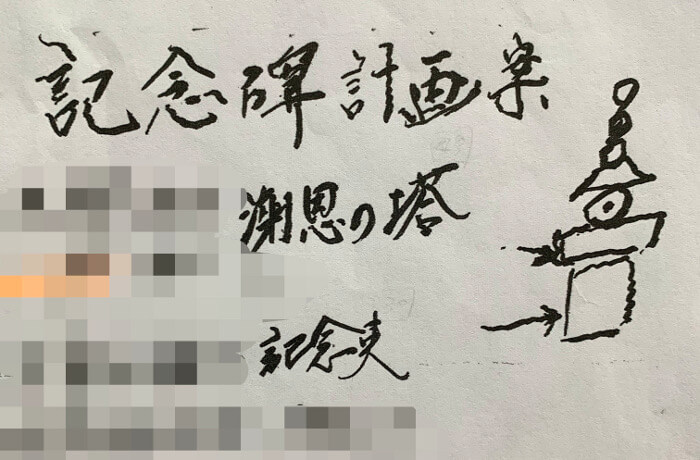 記念碑計画案
謝恩の塔
記念史